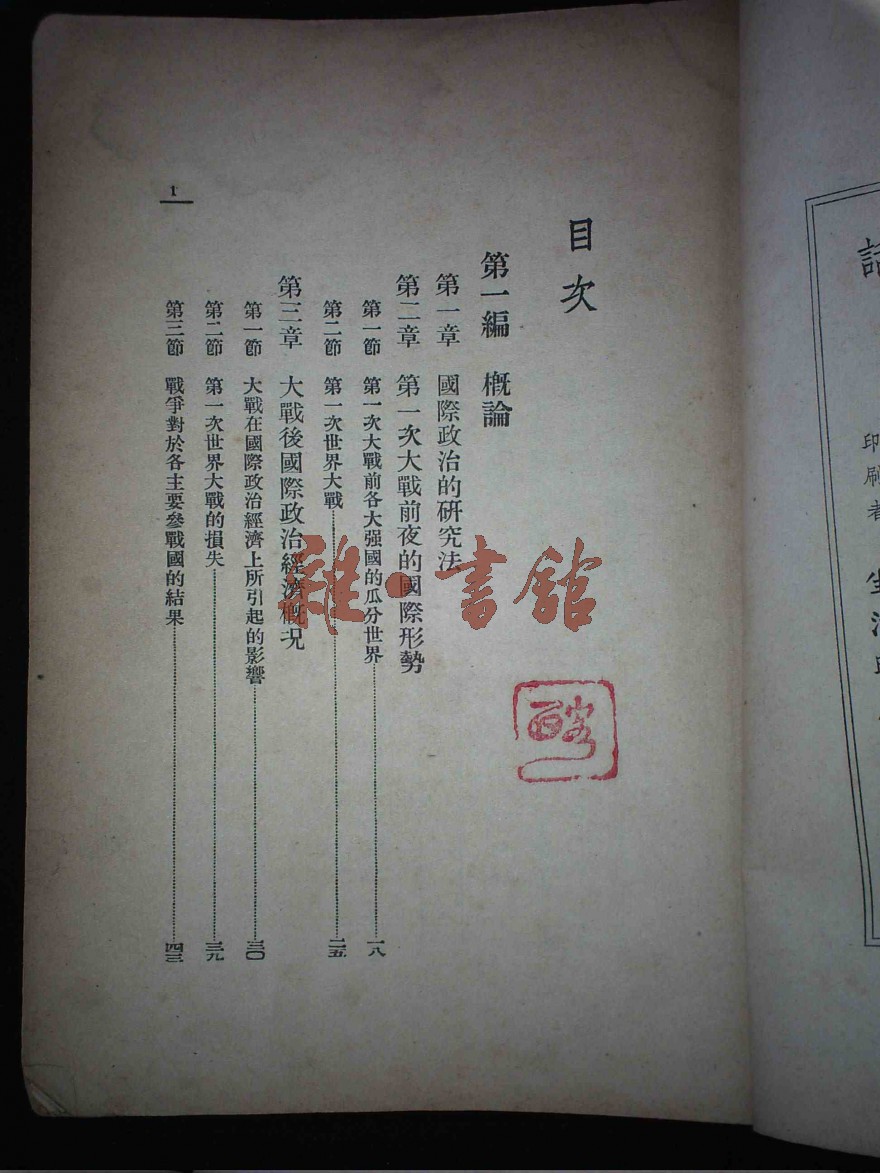 目次
第一編 概論
第一章 國際政治的研究法
第二章 第一次大戰前夜的國際形勢
第一節 第一次大戰前各大强國的瓜分世界……一八
第二節 第一次世界大戰……二五
第三章 大戰後國際政治經濟概況
第一節 大戰在國際政治經濟上所引起的影響……三〇
第二節 第一次世界大戰的損失……三九
第三節 戰爭對於各主要參戰國的結果……四三
1
雜·書館
印刷者 生活